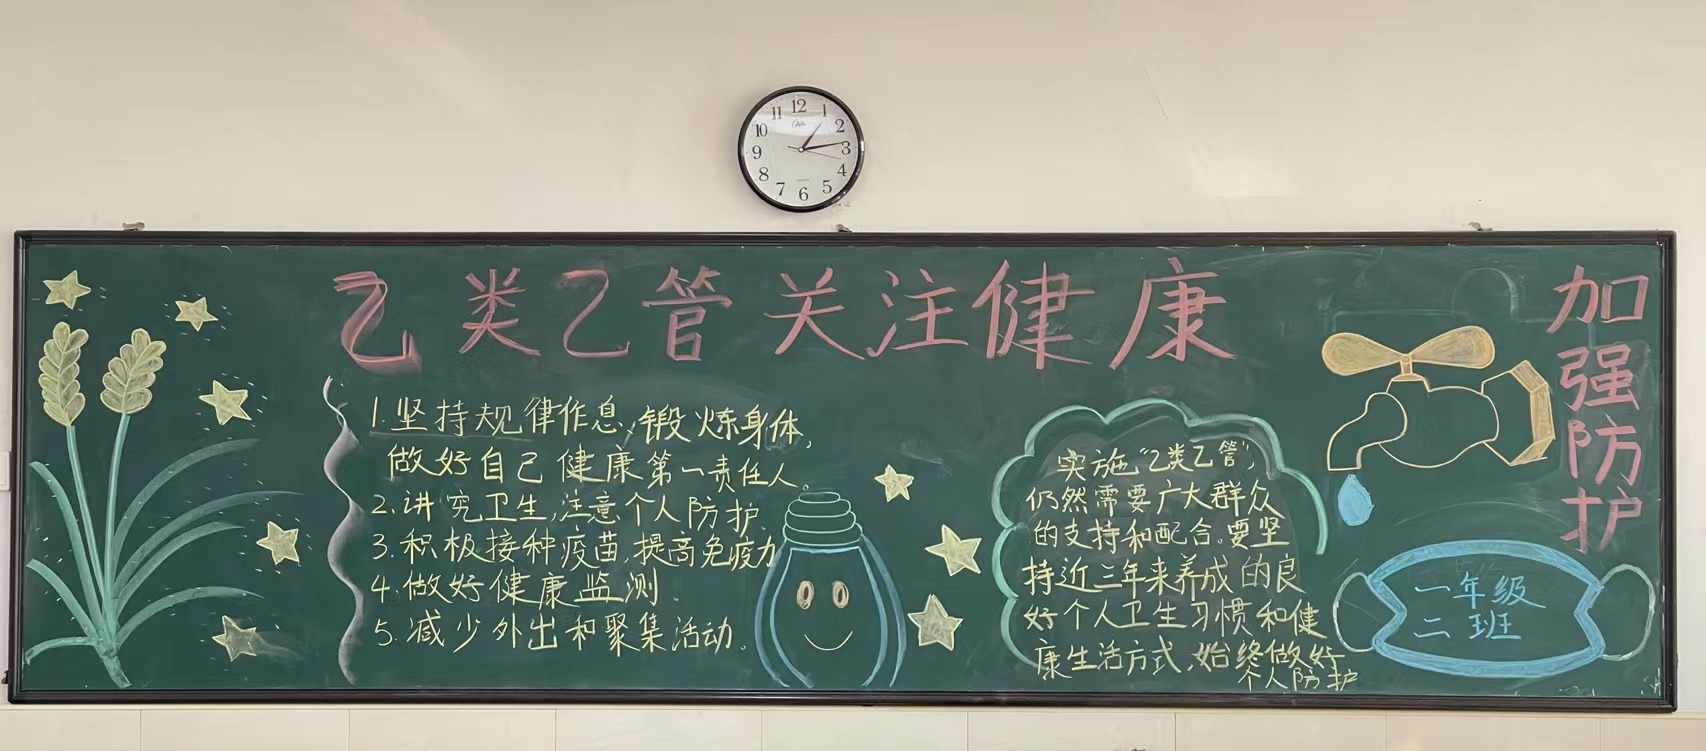 12
1
2
3
4
5
6
7
8
9
10
11
乙类乙管关注健康
加强防护
1.坚持规律作息、锻炼身体,
做好自己健康第一责任人。
2.讲究卫生,注意个人防护.
3.积极接种疫苗,提高免疫力
4.做好健康监测.
5.减少外出和聚集活动。
实施“乙类乙管”,
仍然需要广大群众
的支持和配合。要坚
持近三年来养成的良
好个人卫生习惯和健
康生活方式,始终做好
个人防护
一年级
二班